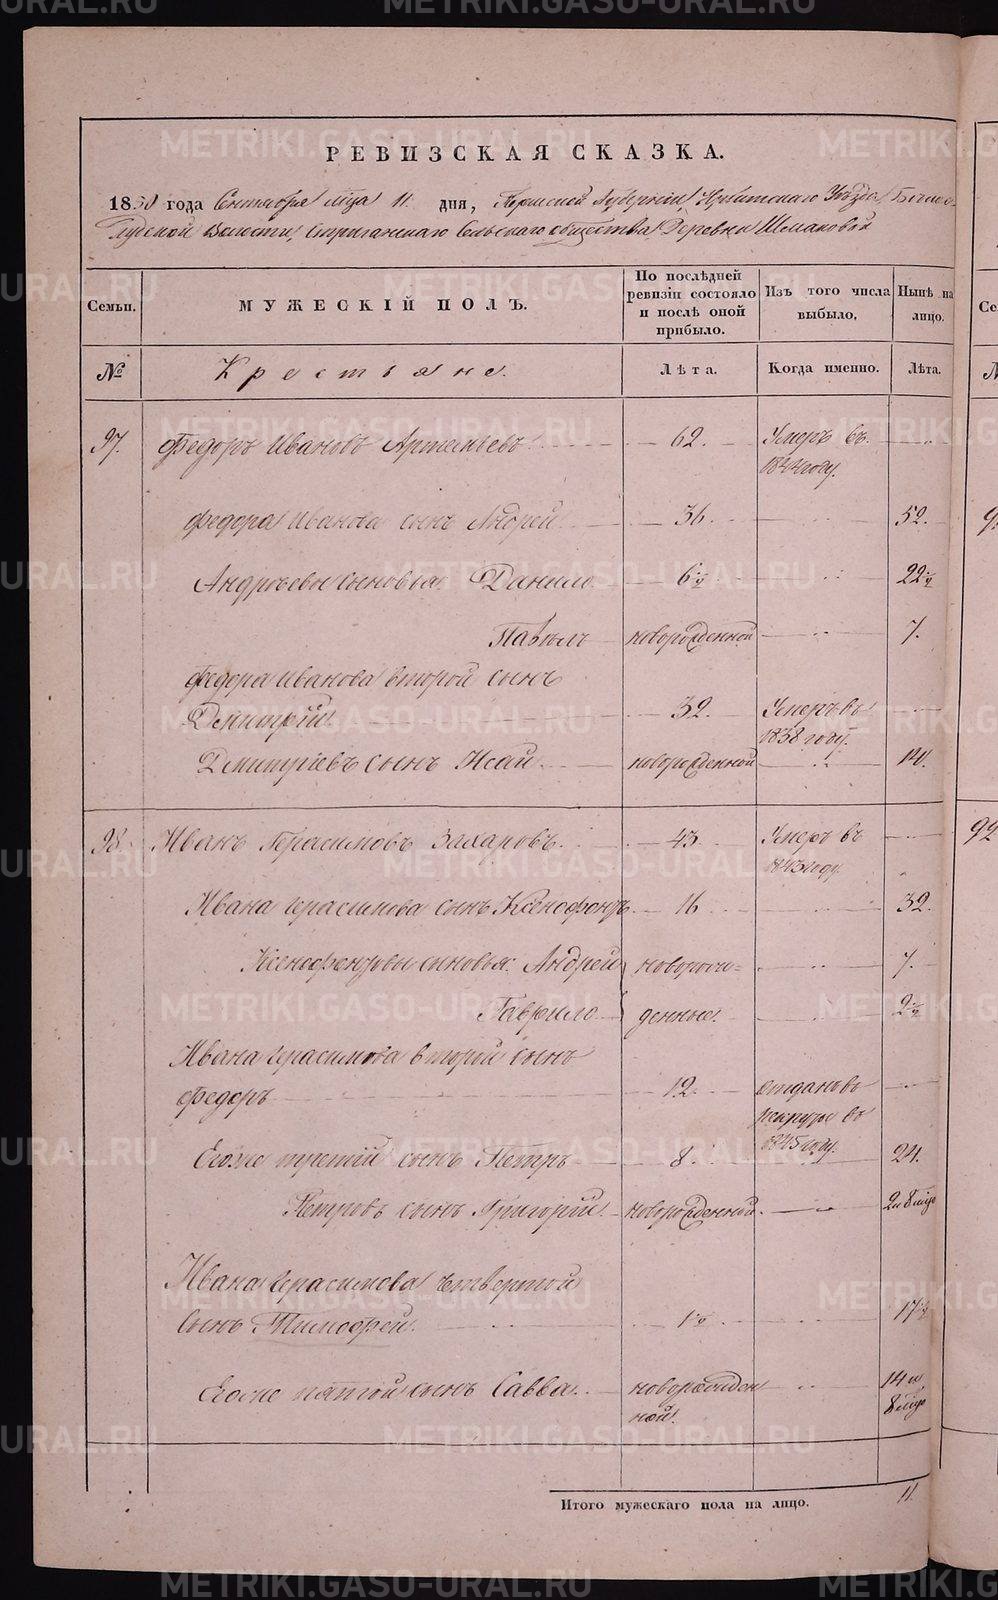 РЕВИЗСКАЯ СКАЗКА.
1850 года Сентября м̃ца 11 дня, Пермской Губернiи Ирбитскаго Уѣзда
Волости, Стриганскаго Сельскаго общества, Деревни Шмаковой
Семьи. МУЖЕСКIЙ ПОЛЪ. По послѣдней ревизiи состояло и послѣ оной прибыло. Изъ того числа выбыло. Нынѣ на лицо.
№ Крестьяне. Лѣта. Когда именно. Лѣта.
97. Федоръ Ивановъ Артемьевъ 62. Умеръ въ
1844 году.
Федора Иванова сынъ Андрей 36. 52.
Андреевы сыновья: Данило 6½ 22½
Павелъ новорожденной 7.
Федора Иванова второй сынъ
Дмитрiй 32. Умеръ въ
1838 году.
Дмитрiевъ сынъ Исай новорожденной 14.
98. Иванъ Герасимовъ Захаровъ. 43. Умеръ въ
1843 году
Ивана Герасимова сынъ Ксенофонтъ 16 32.
Ксенофонтовы сыновья: Андрей новорож= 7.
Гаврило денные. 2½
Ивана Герасимова второй сынъ
Федоръ 12. отданъ въ
рекруты въ
1845 году.
Егоже третiй сынъ Петръ 8. 24.
Петровъ сынъ Григорiй новорожденной. 2 и 8 мѣс
Ивана Герасимова четвертой
сынъ Тимофей. 1½ 17½
Егоже пятой сынъ Савва. новорожден 14 и
ной. 8 мѣс
Итого мужескаго пола на лицо. 11.
METRIKI.GASO-URAL.RU